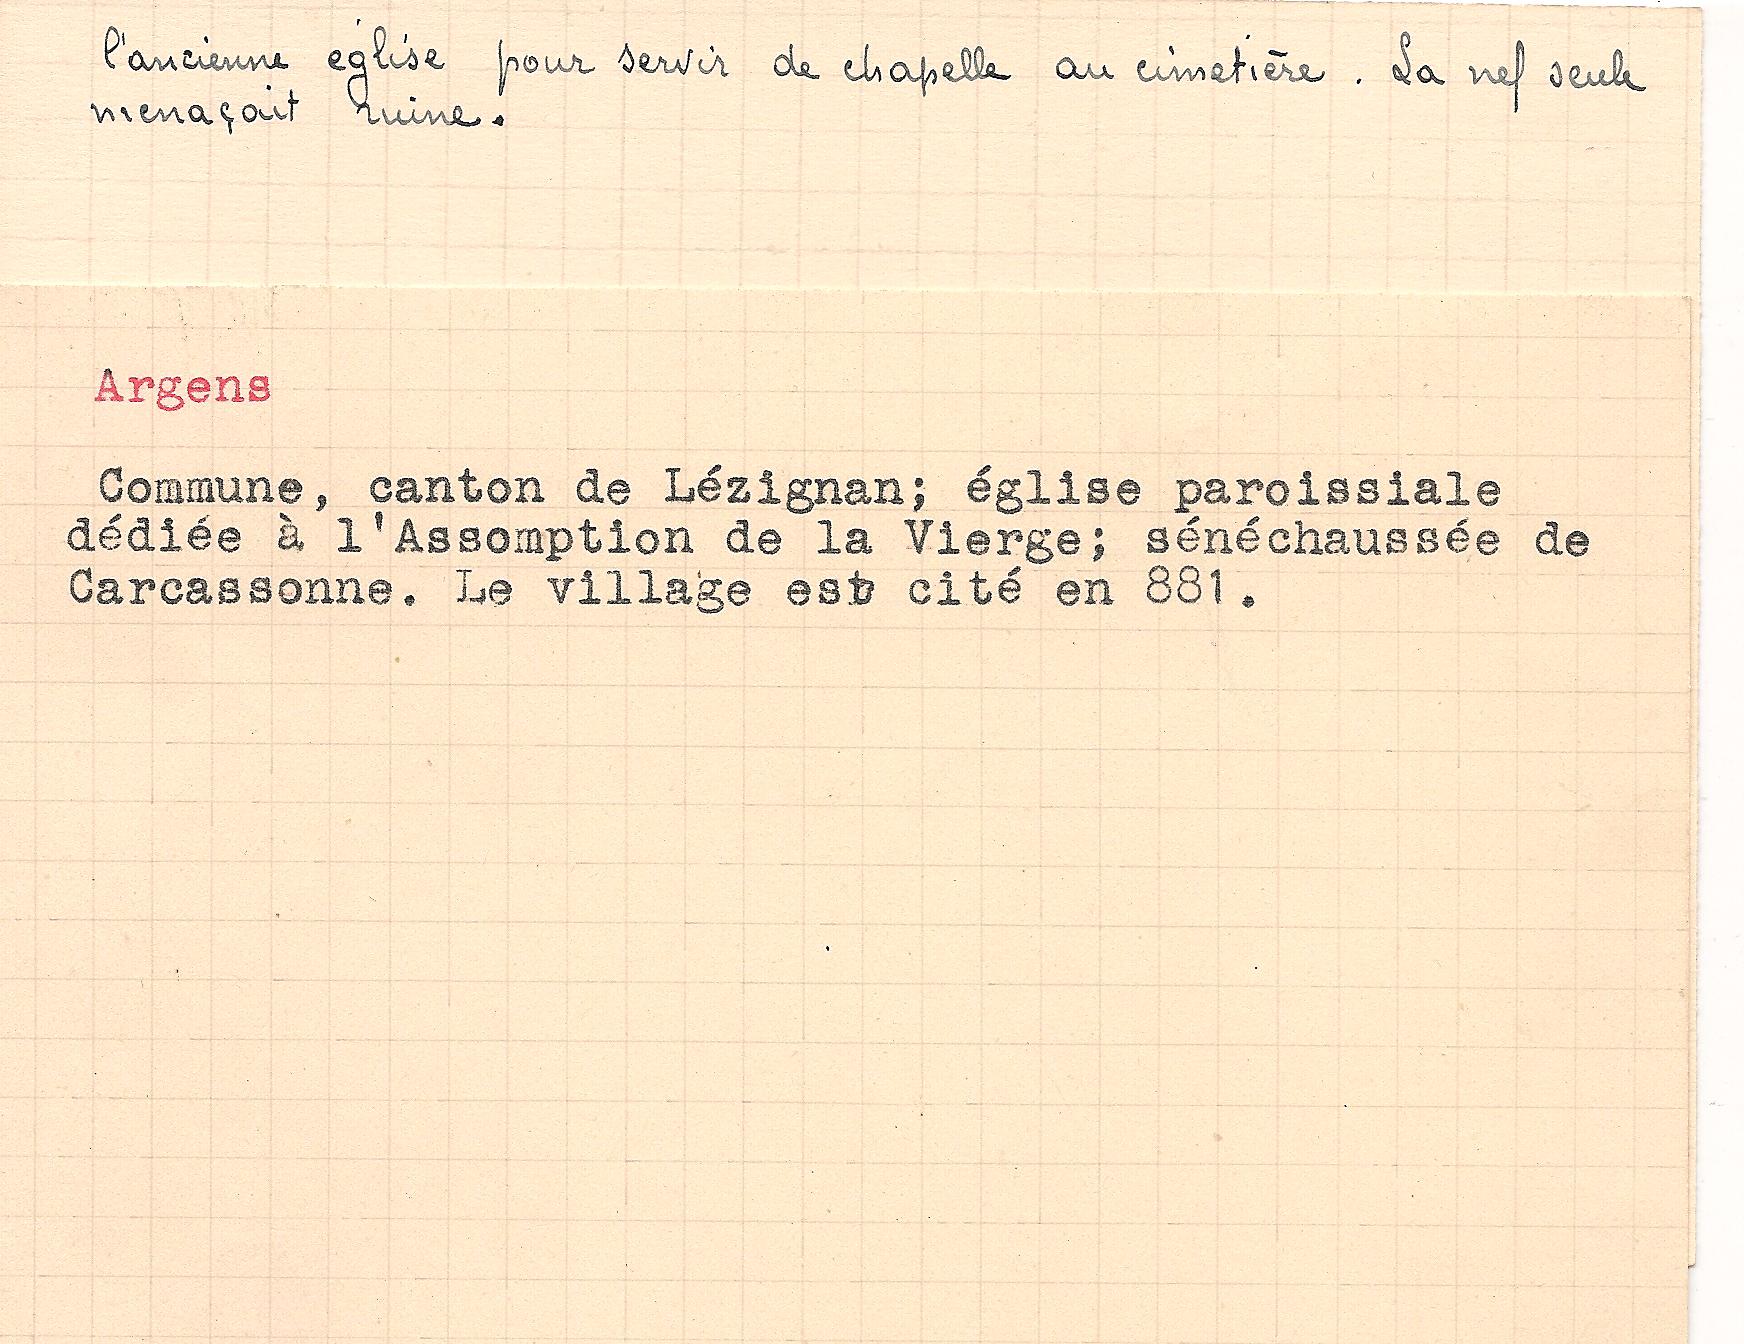 l'ancienne église pour servir de chapelle au cimetière. La nef seule
menaçait ruine.
Argens
Commune, canton de Lézignan; église paroissiale
dédiée à l'Assomption de la Vierge; sénéchaussée de
Carcassonne. Le village est cité en 881.